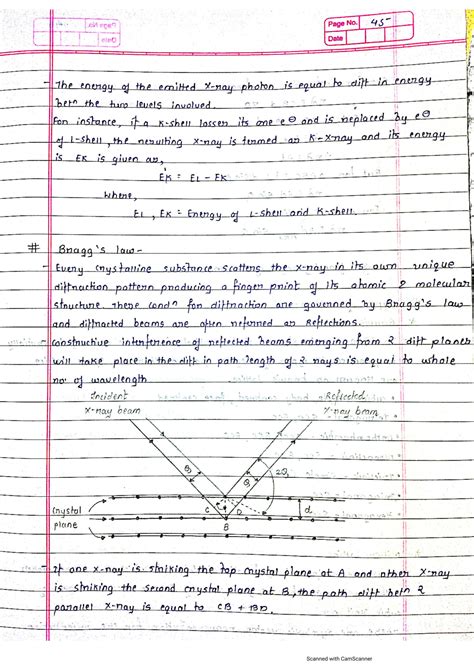 Page No. 45
Date
- The energy of the emitted X-ray photon is equal to diff in energy
betn the two levels involved.
For instance, if a K-shell losses its one e⊖ and is replaced by e⊖
of L-shell, the resulting X-ray is termed as K-X-ray and its energy
is EK is given as,
EK = EL - EK
where,
EL, EK = Energy of L-shell and K-shell.
# Bragg's law -
- Every crystalline substance scatters the x-ray in its own unique
diffraction pattern producing a finger print of its atomic & molecular
structure. These condn for diffraction are governed by Bragg's law
and diffracted beams are often referred as Reflections.
- Constructive interference of reflected beams emerging from 2 diff planes
will take place in the diff in path length of 2 rays is equal to whole
no. of wavelength
Incident
X-ray beam
Reflected
X-ray beam
2θ
crystal
plane
C
D
d
B
- If one x-ray is striking the top crystal plane at A and other X-ray
is striking the second crystal plane at B, the path diff betn 2
parallel X-ray is equal to CB + BD.
Scanned with CamScanner